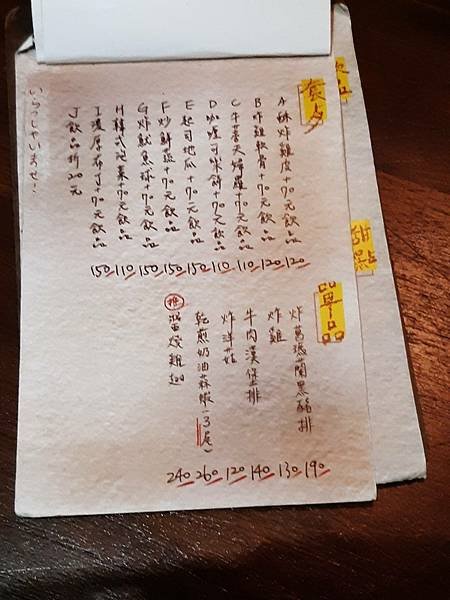 A 酥炸雞皮+70元飲品 120
B 炸雞軟骨+70元飲品 120
C 牛蒡天婦羅+70元飲品 110
D 咖哩可樂餅+70元飲品 110
E 起司地瓜+70元飲品 150
F 炒鮮蔬+70元飲品 150
G 炸魷魚球+70元飲品 150
H 韓式泡菜+70元飲品 110
I 70元飲品 150
J 飲品折20元
いらっしゃいませ!
單品
炸葛瑪蘭黑豬排 190
炸雞 130
牛肉漢堡排 140
炸洋菇 120
乾煎奶油蒜蝦(3尾) 260
推 雞翅 240
甜點